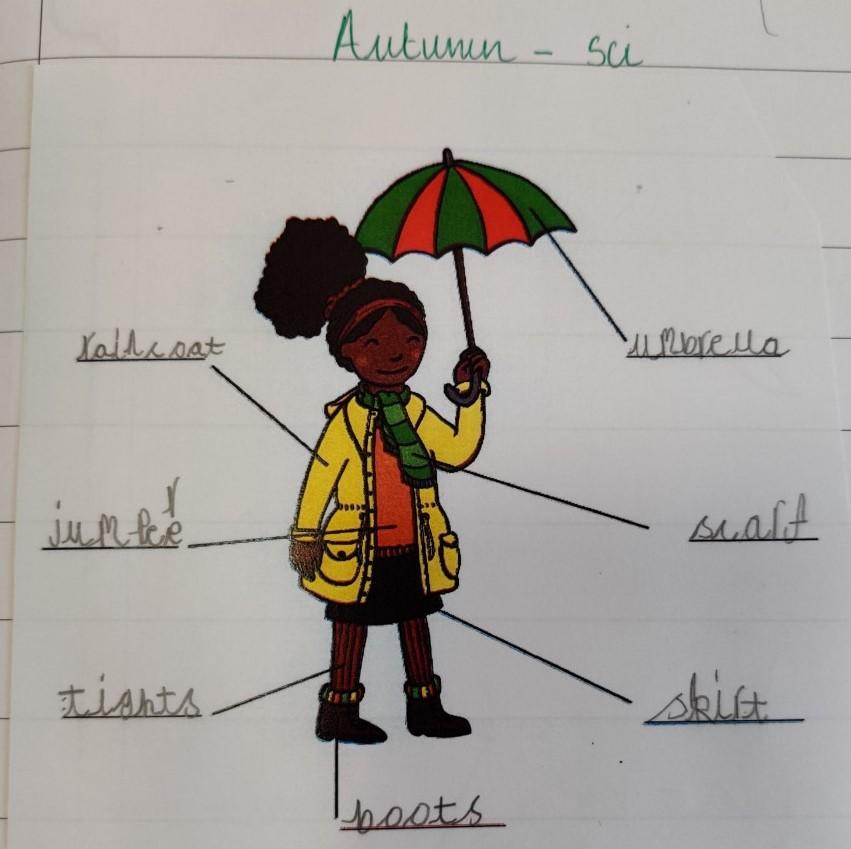 Autumn - sci
raincoat
umbrella
jumper
scarf
tights
skirt
boots